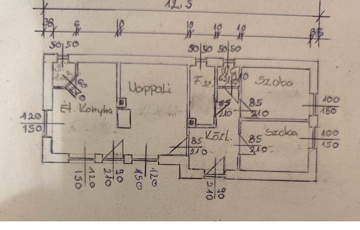 12.5
38 6 10 10 10 10 38
50 50 50 50 50 50
Nappali
F.sz.
Szoba
60
85
210
85
210
120
150
Ét. Konyha
100
150
Közl.
Szoba
100
150
85
210
150 120 210 90 150 120
210 90